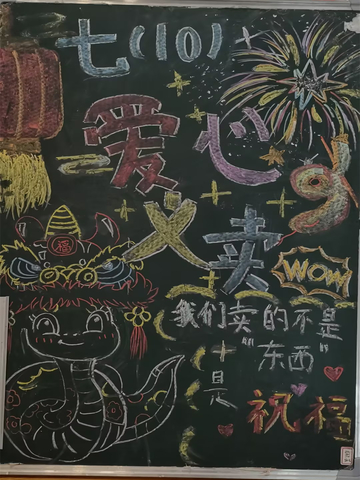 七(10)
爱心
义卖
福
WOW
我们卖的不是
"东西"
是
祝福